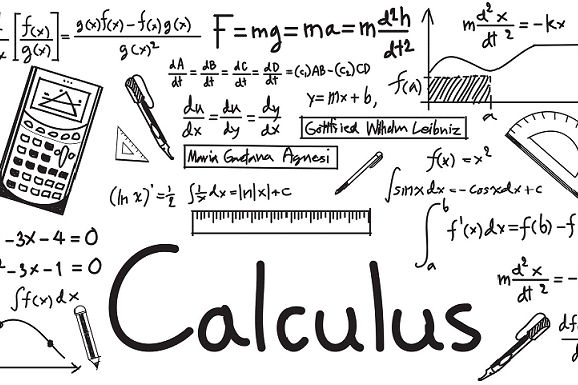 d/x [f(x)/g(x)] = g(x)f(x)-f(x)g(x)/g(x)²
F=mg=ma=m d²h/dt²
m d²x/dt² = -kx
dA/dt = dB/dt = dC/dt = dD/dt = (c₁)AB-(c₂)CD
f(a)
a
y=mx+b,
du/dx = du/dy = dy/dx
Gottfried Wilhelm Leibniz
Maria Gaetana Agnesi
f(x)=x²
(ln x)'=1/2
∫1/x dx=ln|x|+c
∫sinxdx=-cosxdx+c
∫ₐᵇ f'(x)dx=f(b)-f
-3x-4=0
²-3x-1=0
∫f(x)dx
m d²x/dt² = -
Calculus
df